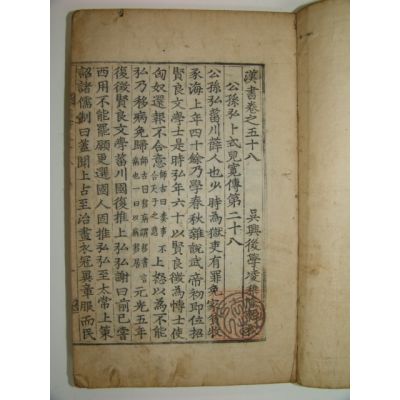 漢書卷之五十八
吳興後學凌稚隆
公孫弘卜式兒寬傳第二十八
公孫弘菑川薛人也少時為獄吏有罪免家貧牧
豕海上年四十餘乃學春秋雜說武帝初即位招
賢良文學士是時弘年六十以賢良徵為博士使
匈奴還報不合意師古曰奏事不合天子之意上怒以為不能
弘乃移病免歸師古曰移病謂移書言病也一曰以病移居元光五年
復徵賢良文學菑川國復推上弘弘謝曰前已嘗
西用不能罷願更選國人固推弘弘至太常上策
詔諸儒制曰蓋聞上古至治畫衣冠異章服而民